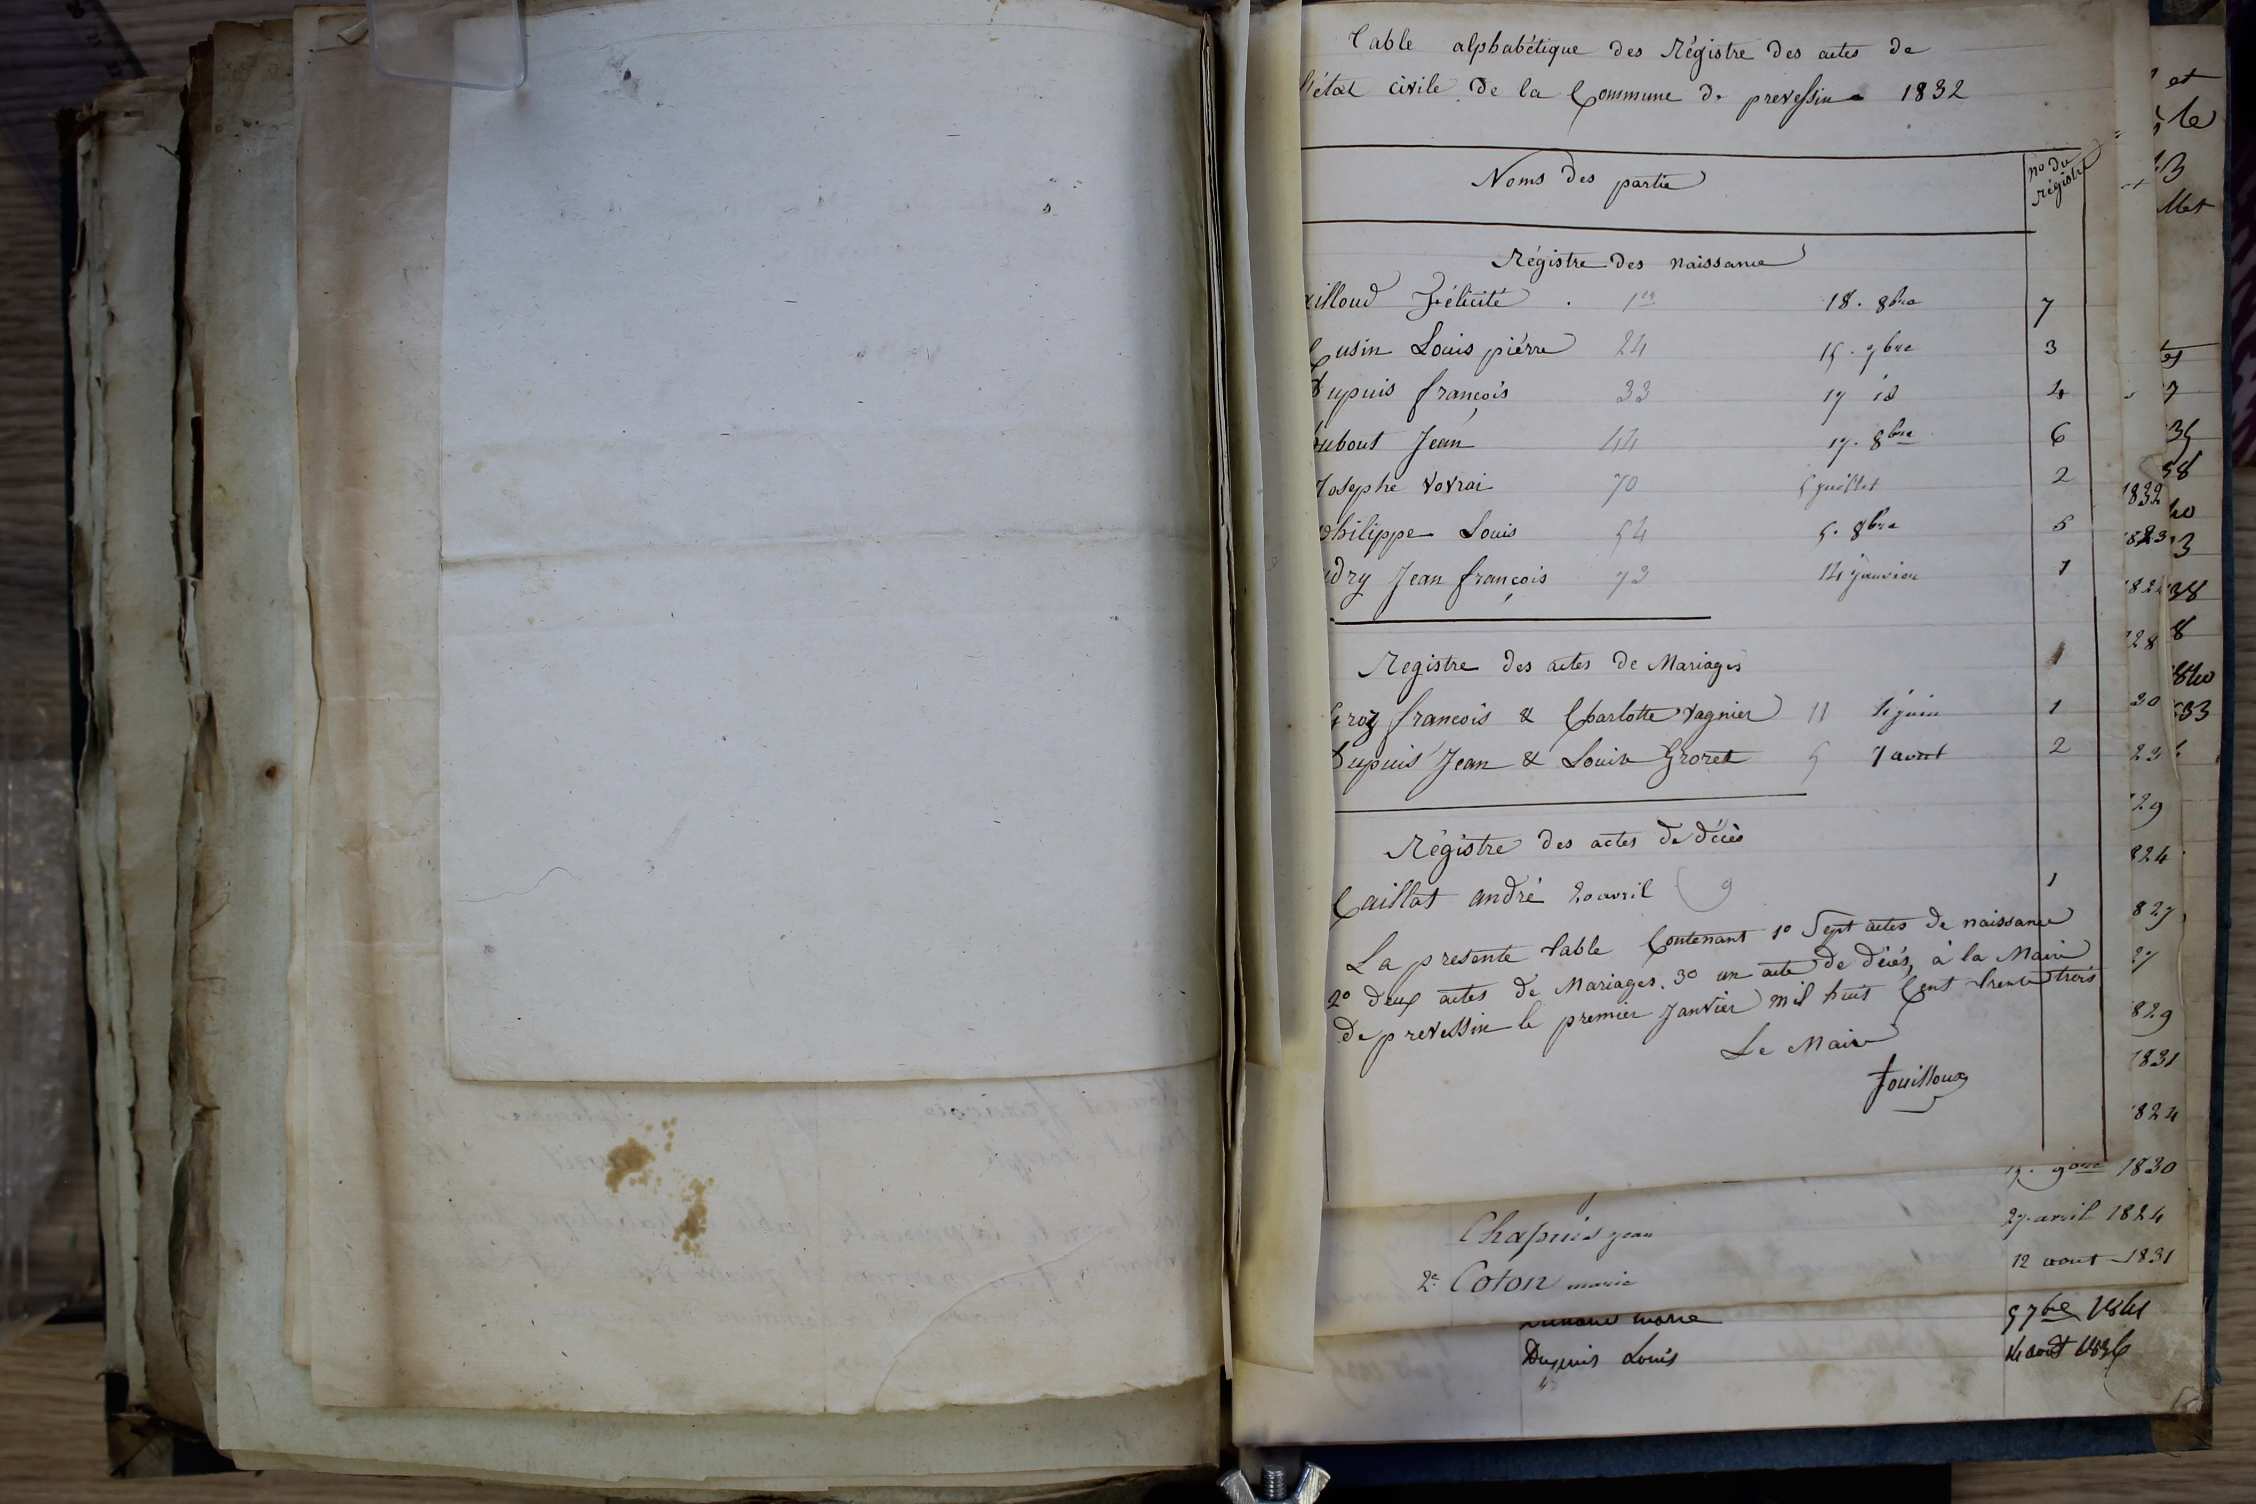 Table alphabétique des Régistre des actes de
l'état civile de la Commune de prevessin 1832
Noms des partie
no du régistre
Régistre des naissance
illoud Félicité . 1er 18. 8bre 7
Cusin Louis piérre 24 15. 7bre 3
Dupuis françois 33 17 id 4
Dubout Jean 44 17. 8bre 6
Josephe vovrai 70 5 juillet 2
philippe Louis 54 5. 8bre 5
udry Jean françois 73 14 janvier 1
Registre des actes de Mariages
Groz françois & Charlotte vagnier 11 4 juin 1
Dupuis Jean & Louise Groret 5 7 avril 2
Régistre des actes de décès
Caillat andré 20 avril 9 1
La presente table Contenant 1o Sept actes de naissance
2o deux actes de Mariages. 3o un acte de décés, à la Mairie
de prevessin le premier Janvier mil huit Cent trente trois
Le Maire
Jouilloux
9bre 1830
Chapuis jean 27 avril 1824
2e Coton marie 12 aout 1831
marie 5 7bre 1841
Dupuis Louis 14 août 1836